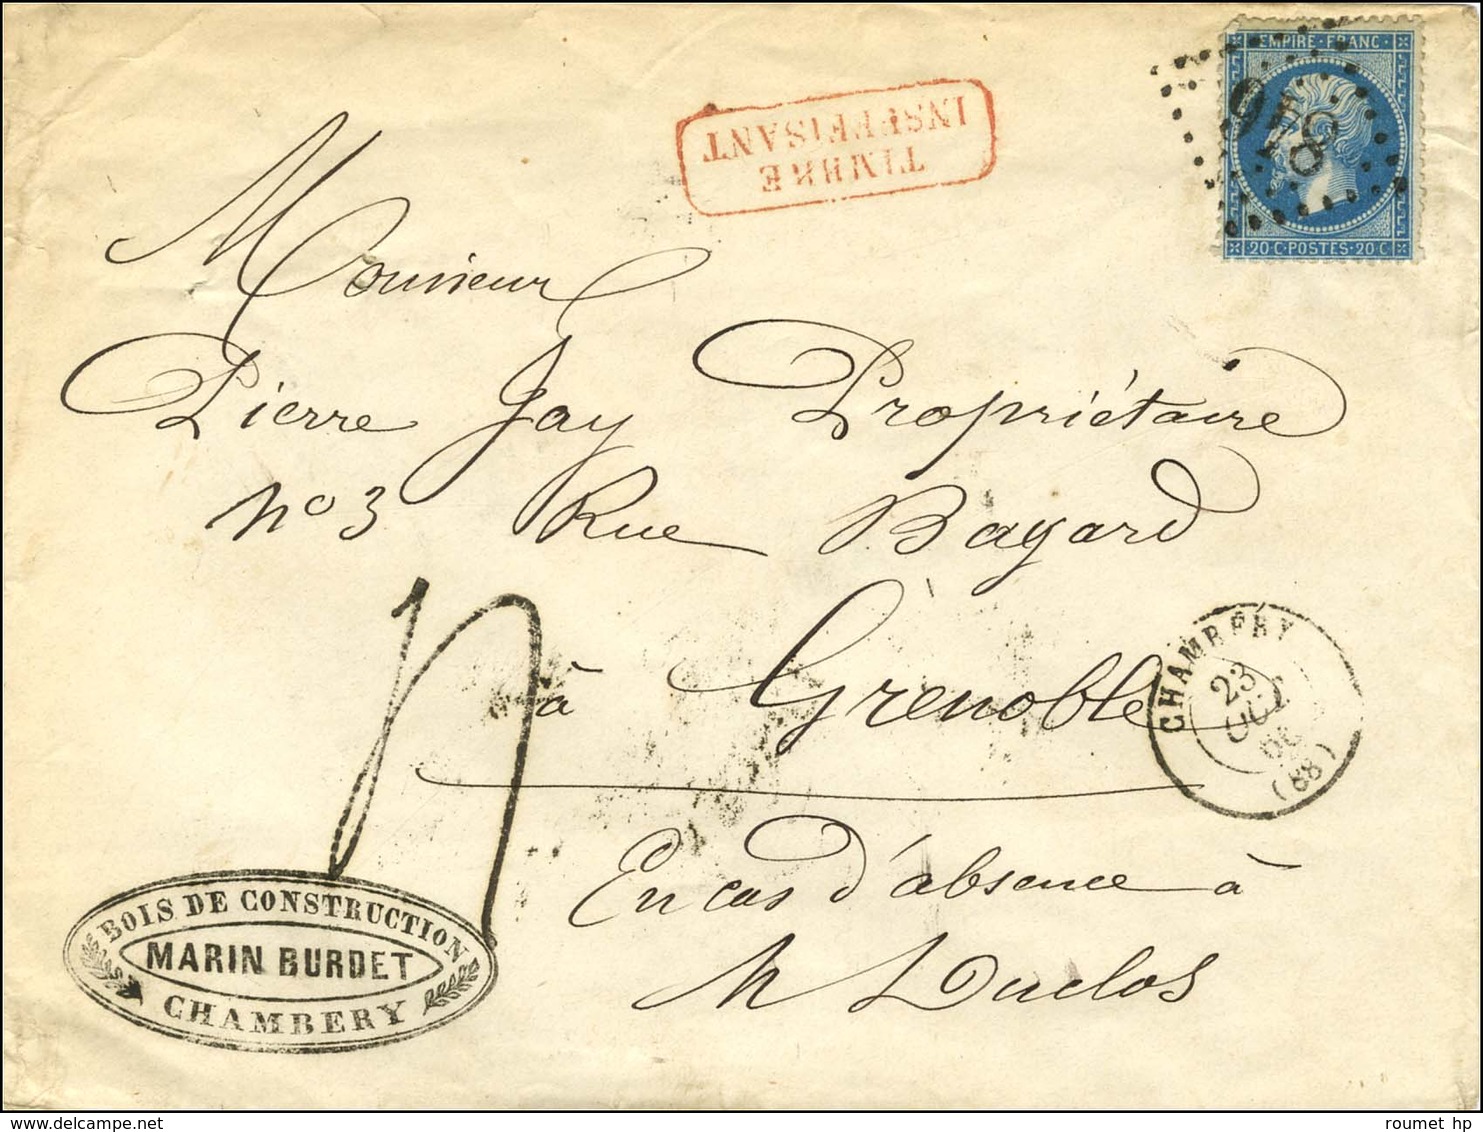 EMPIRE · FRANC ·
20 C · POSTES · 20 C
TIMBRE
INSUFFISANT
Monsieur
Pierre Jay Propriétaire
No 3 Rue Bayard
à Grenoble
CHAMBÉRY
23
OCT
66
(88)
En cas d'absence à
M Duclos
BOIS DE CONSTRUCTION
MARIN BURDET
CHAMBERY
www.delcampe.net
roumet hp